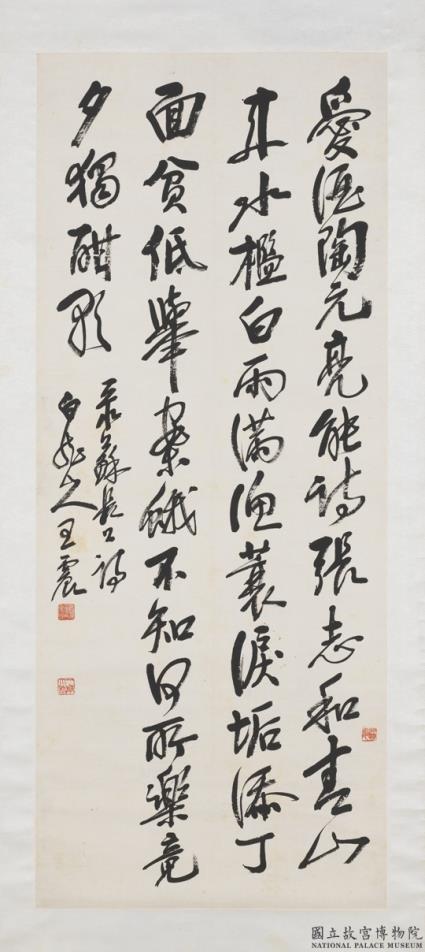 愛酒陶元亮能詩張志和青山
來水檻白雨滿漁蓑淚垢添丁
面貧低舉案蛾不知何所樂竟
夕獨酣歌
录蘇長公詩
白龍山人王震
國立故宮博物院
NATIONAL PALACE MUSEUM